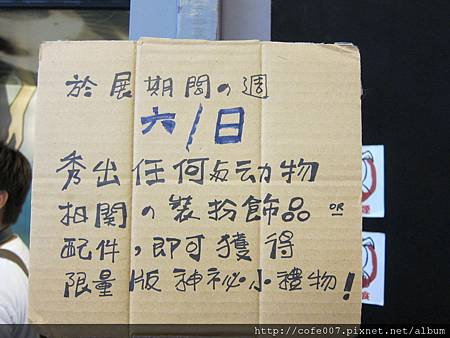 於展期間の週
六/日
秀出任何与动物
相關の裝扮飾品 OR
配件,即可獲得
限量版神祕小禮物!
http://cofe007.pixnet.net/album